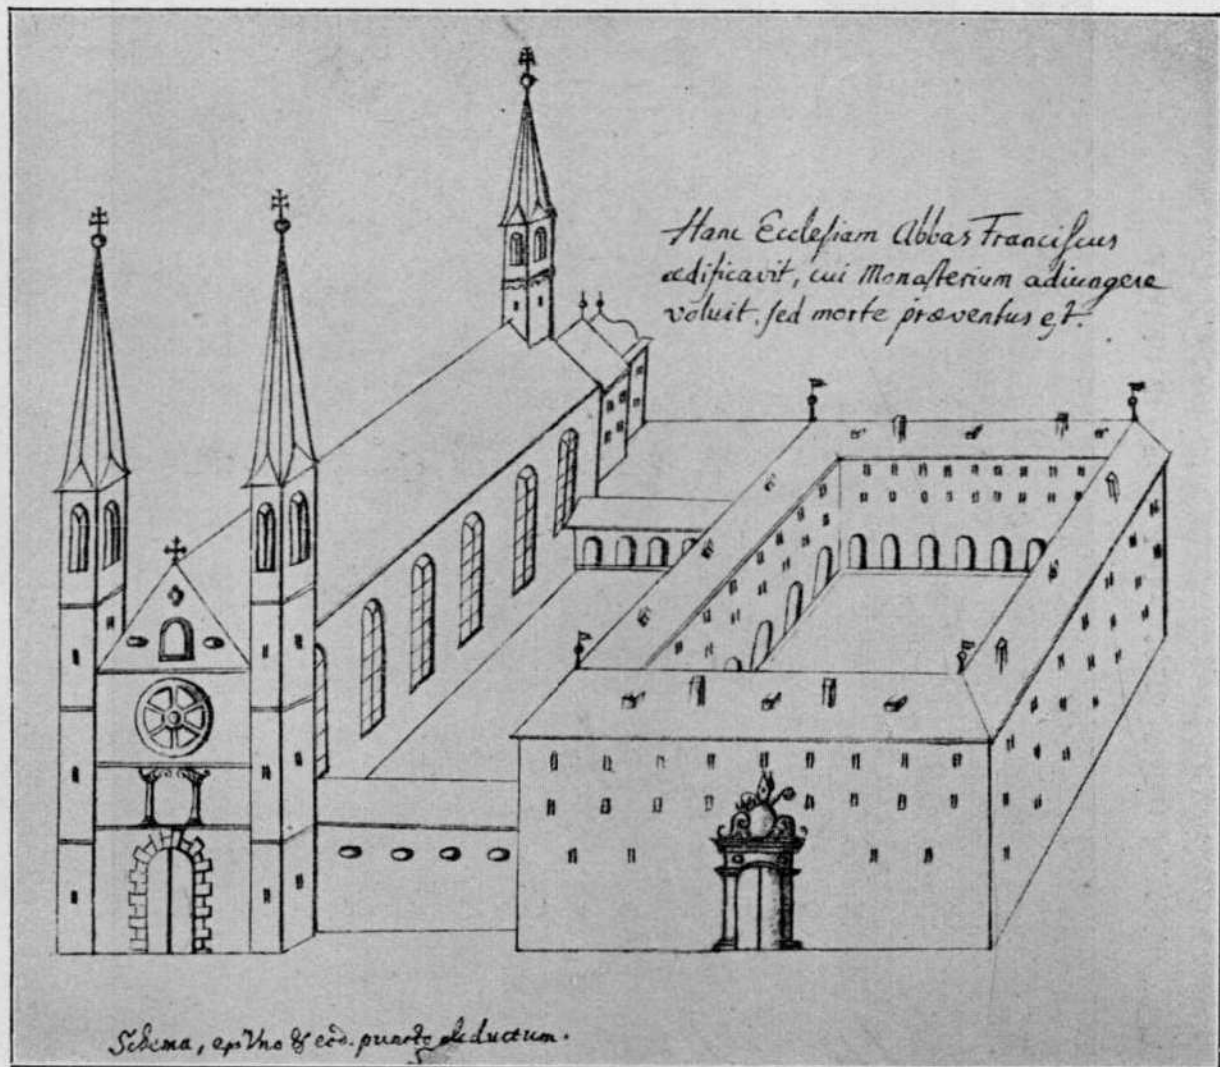 Hanc Ecclesiam Abbas Franciscus
ædificavit, cui Monasterium adiungere
voluit, sed morte præventus est.
Schema, ex Uno & eod. puncto deductum.